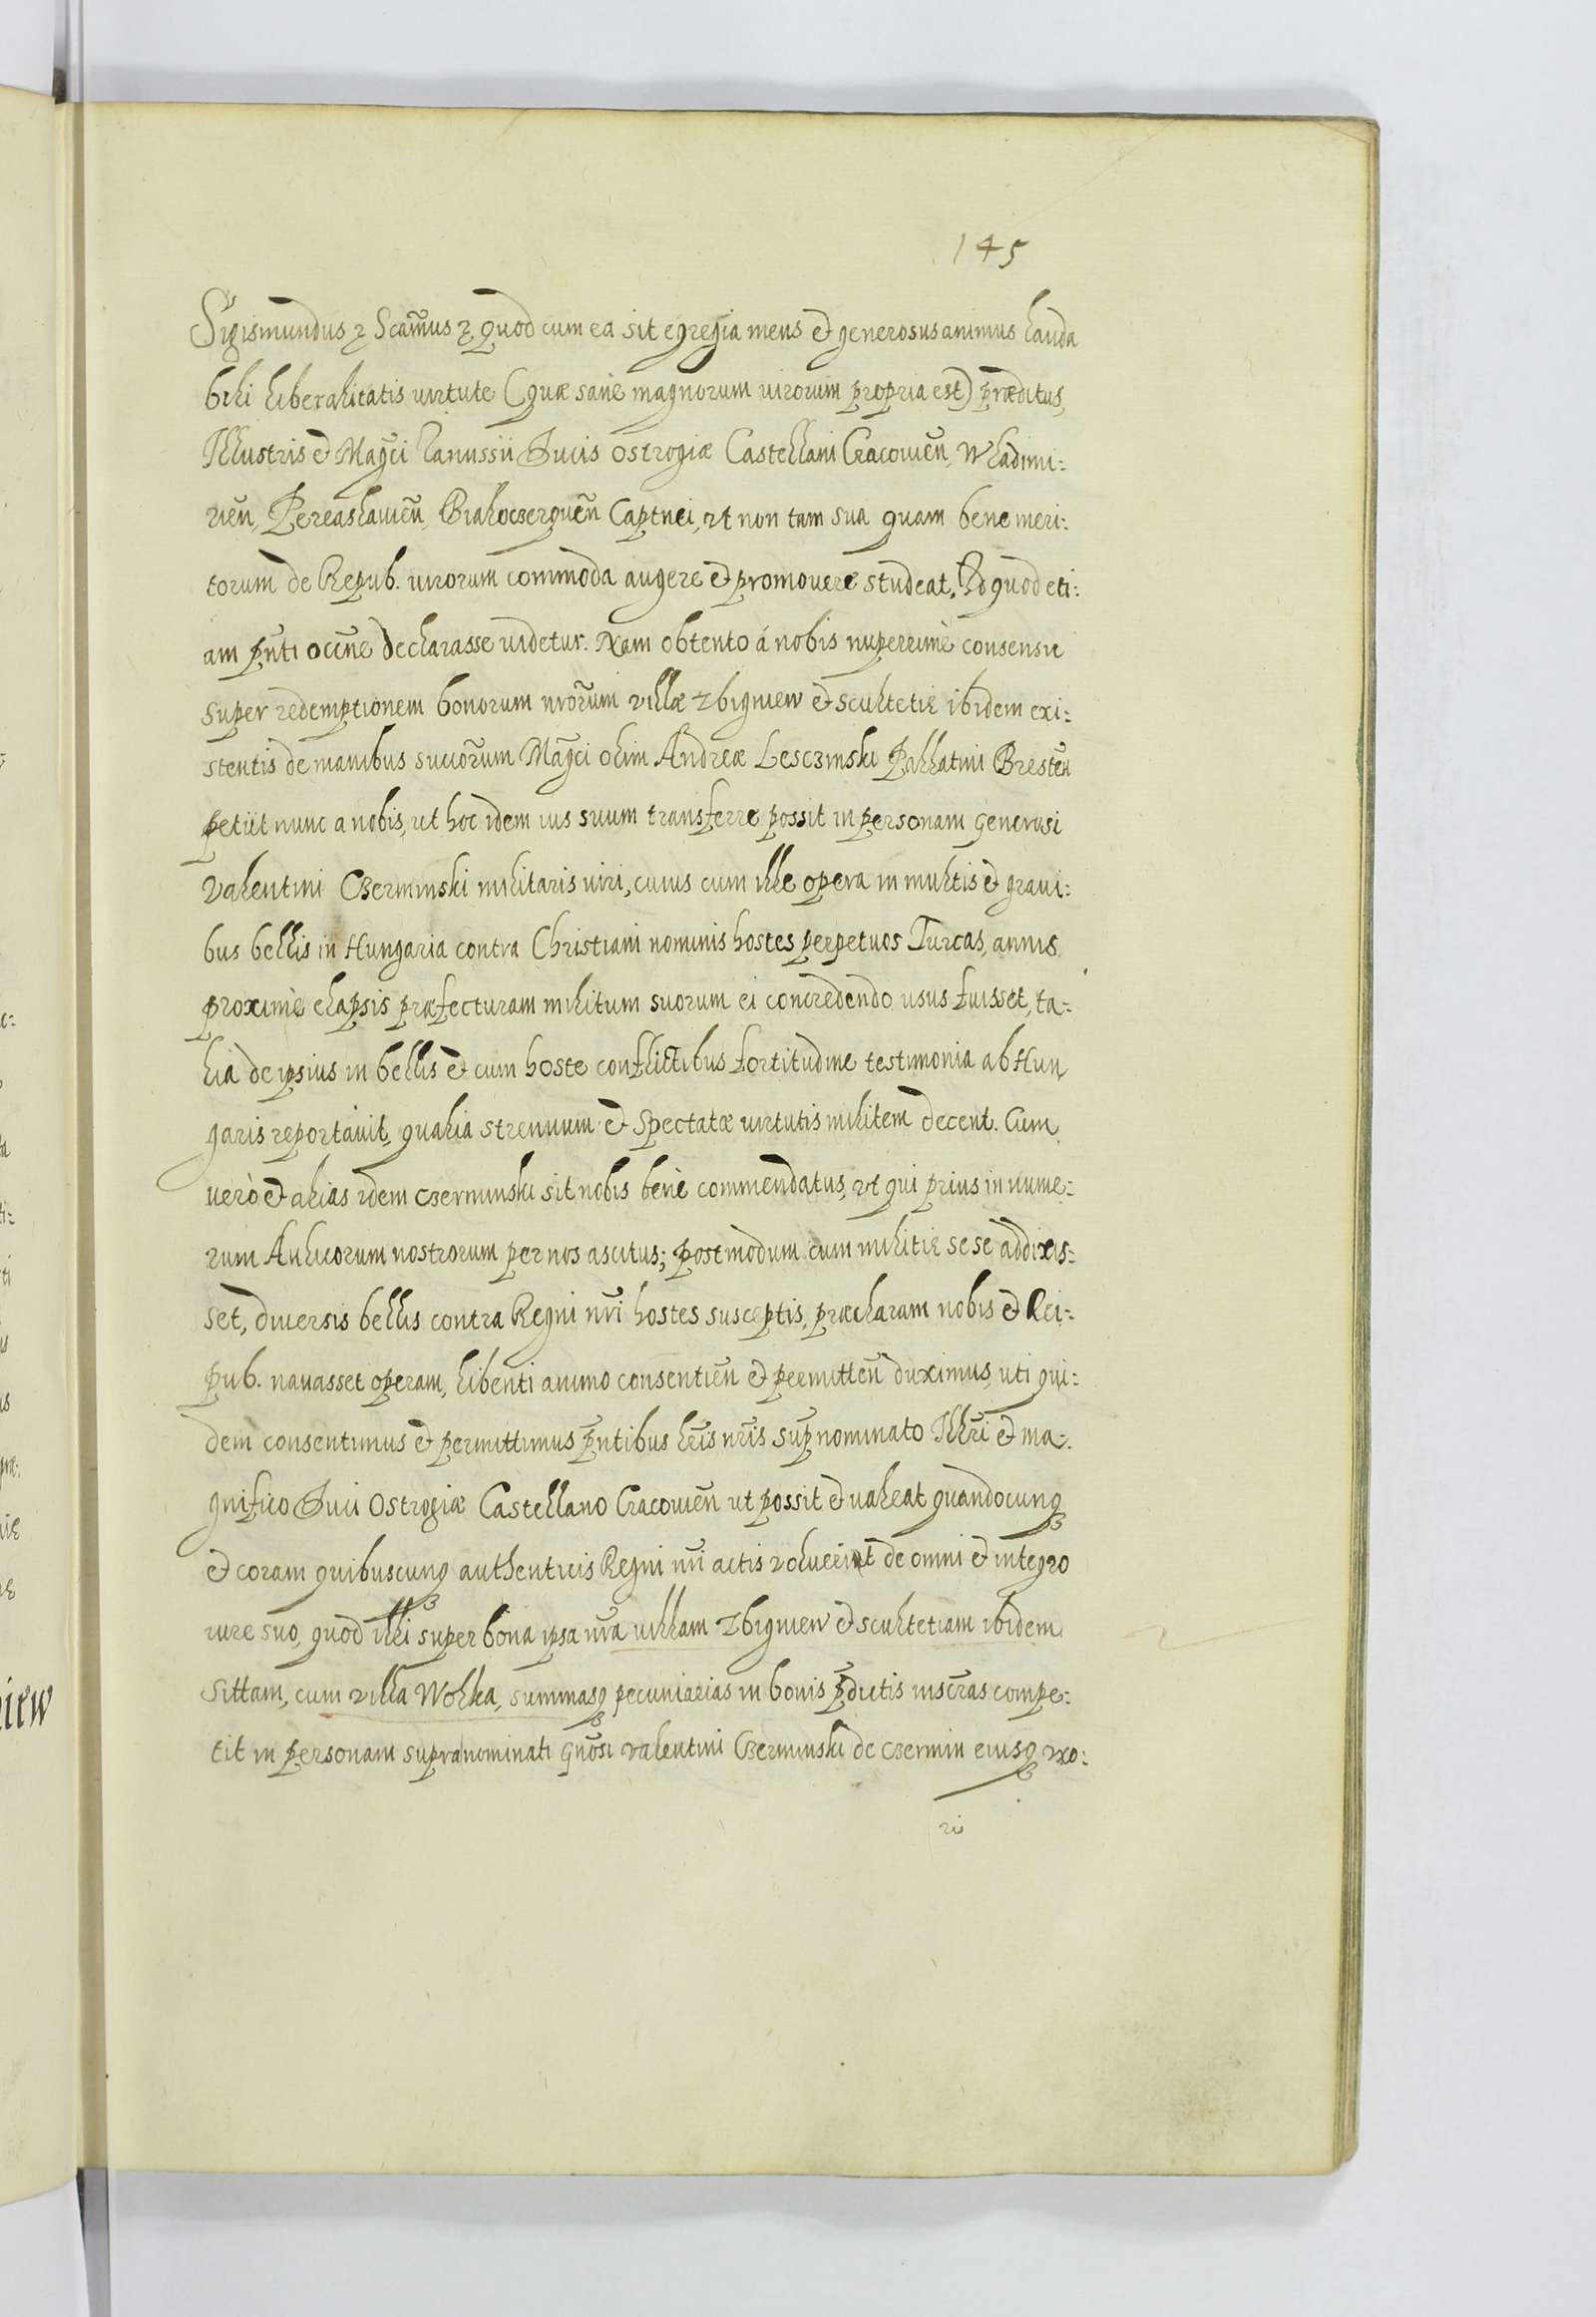 145
Sigismundus ꝛ Scamus ꝛ Quod cum ea sit egregia mens et generosus animus lauda
bili liberalitatis virtute (quæ sanè magnorum virorum propria est) præditus,
Illustris et Magci Ianussii Ducis Ostrogiæ Castellani Cracovien̄, Wladimi:
rien̄, Pereaslavien̄, Bialocerquen̄ Captnei, vt non tam sua quam bene meri:
torum de Repub. virorum commoda augere et promovere studeat, Id quod eti:
am pn̄ti occn̄e declarasse videtur. Nam obtento á nobis nuperrimè consensu
super redemptionem bonorum nrōrum villæ Zbigniew et scultetiæ ibidem exi:
stentis de manibus succōrum Magci olim Andreæ Lesczinski Pallatini Bresten̄
petiit nunc a nobis, ut hoc idem ius suum transferre possit in personam Generosi
Valentini Czerminski militaris viri, cuius cum ille opera in multis et gravi:
bus bellis in Hungaria contra Christiani nominis hostes perpetuos Turcas, annis
proximè elapsis præfecturam militum suorum ei concredendo usus fuisset, ta:
lia de ipsius in bellis et cum hoste conflictibus fortitudine testimonia ab Hun,
garis reportavit, qualia strenuum et Spectatæ virtutis militem decent. Cum
verò et alias idem Czerminski sit nobis benè commendatus, vt qui prius in nume:
rum Aulicorum nostrorum per nos ascitus; postmodum cum militiæ sese addixis:
set, diversis bellis contra Regni nr̄i hostes susceptis, præclaram nobis et Rei:
pub. navasset operam, libenti animo consentien̄ et permitten̄ duximus, uti qui:
dem consentimus et permittimus pn̄tibus lrīs nrīs sup̄nominato Illrī et ma:
gnifico Duci Ostrogiæ Castellano Cracovien̄ ut possit et valeat quandocunqꝫ
et coram quibuscunqꝫ authenticis Regni nr̄i actis voluerint de omni et integro
iure suo, quod illi super bona ipsa nr̄a villam Zbigniew et scultetiam ibidem
sittam, cum villa Wolka, summasqꝫ pecuniarias in bonis p̄dictis inscr̄as compe:
tit in personam supranominati Gnōsi Valentini Czerminski de Czermin eiusqꝫ vxo:
ri